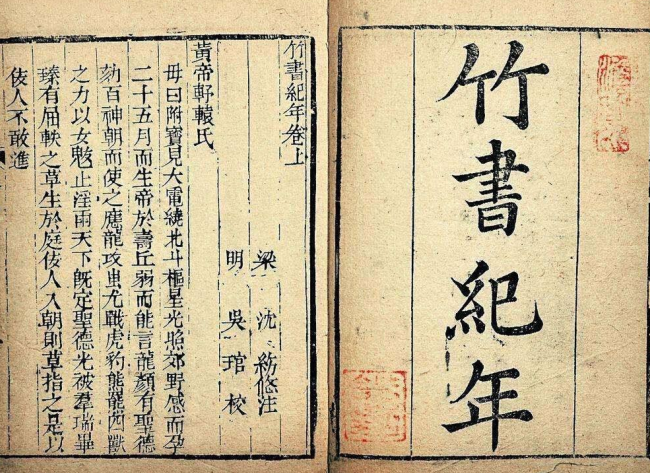 竹書紀年
竹書紀年卷上
梁 沈約附注
明 吳琯校
黃帝軒轅氏
母曰附寶見大電繞北斗樞星光照郊野感而孕
二十五月而生帝於壽丘弱而能言龍顏有聖德
劾百神朝而使之應龍攻蚩尤戰虎豹熊羆四獸
之力以女魃止淫雨天下旣定聖德光被羣瑞畢
臻有屈軼之草生於庭佞人入朝則草指之是以
佞人不敢進